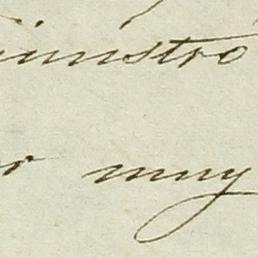 inistró
r muy